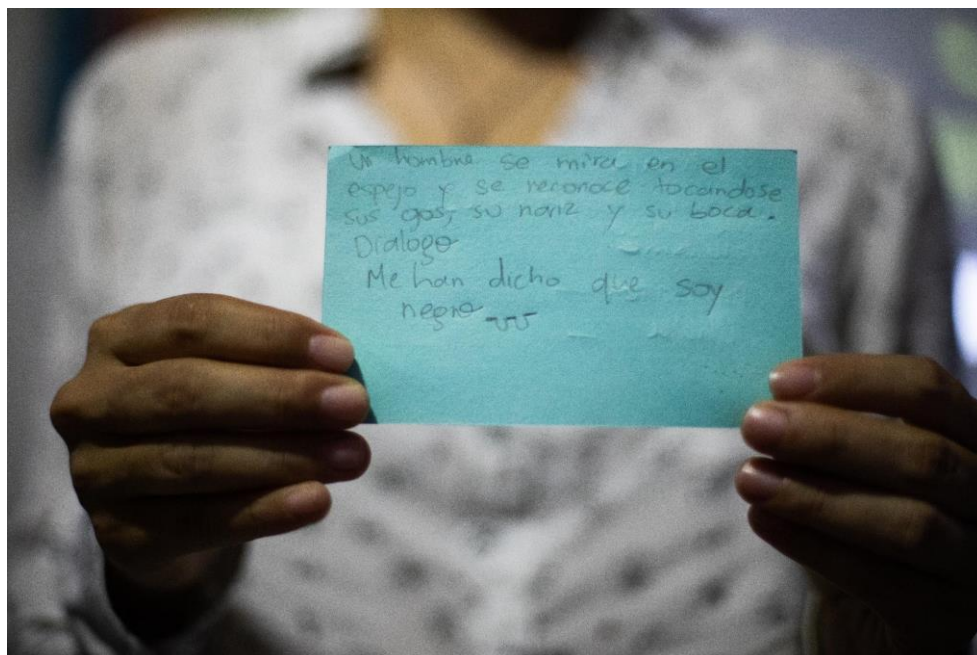 Un hombre se mira en el
espejo y se reconoce tocandose
sus ojos, su nariz y su boca.
Dialogo
Me han dicho que soy
negro